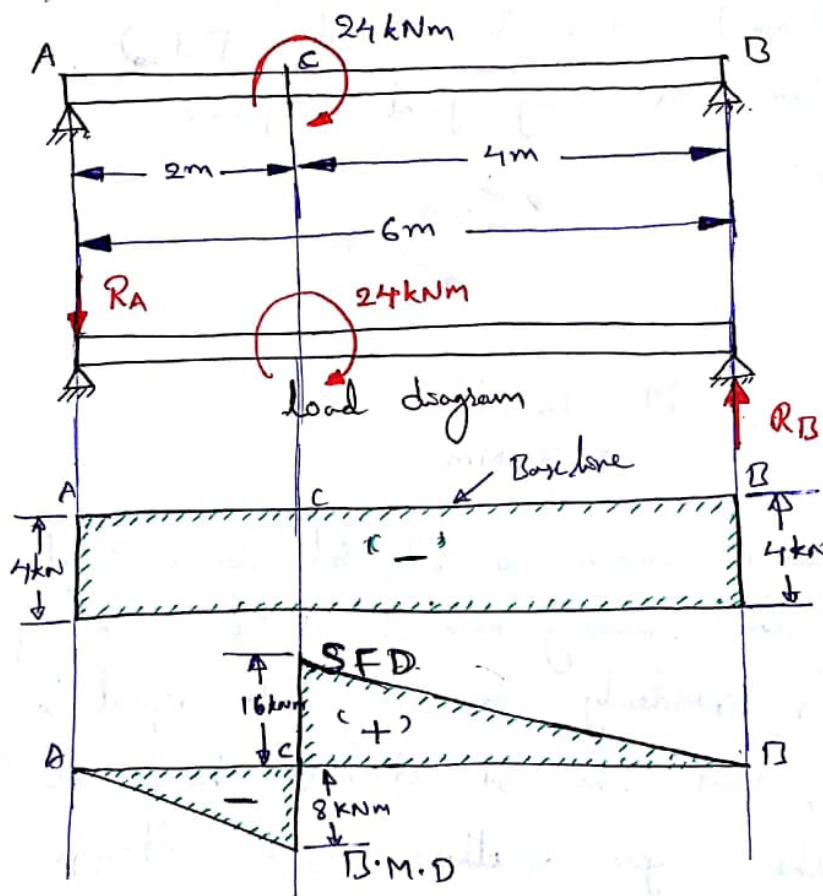 24kNm
A
C
B
2m
4m
6m
RA
24kNm
load diagram
RB
Base line
A
C
B
4kN
(-)
4kN
SFD
16kNm
(+)
A
C
B
-
8kNm
B.M.D